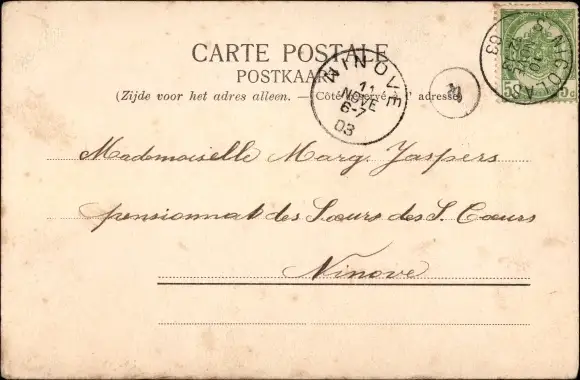 CARTE POSTALE
POSTKAART
(Zijde voor het adres alleen. — Côté réservé à l' adresse)
NINOVE
11
NOVE
6-7
03
S NICOLA
03
5c 5c
Mademoiselle Marg. Jaspers
pensionnat des Sœurs des S. Cœurs
Ninove